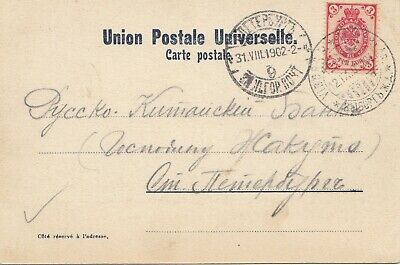 Union Postale Universelle.
Carte postale
31.VIII.1902
9
ГОР. ПОЧТ
3
3
Русско-Китайский Банк
(Господину Жакуто)
Ст. Петербургъ
Côté réservé à l'adresse.